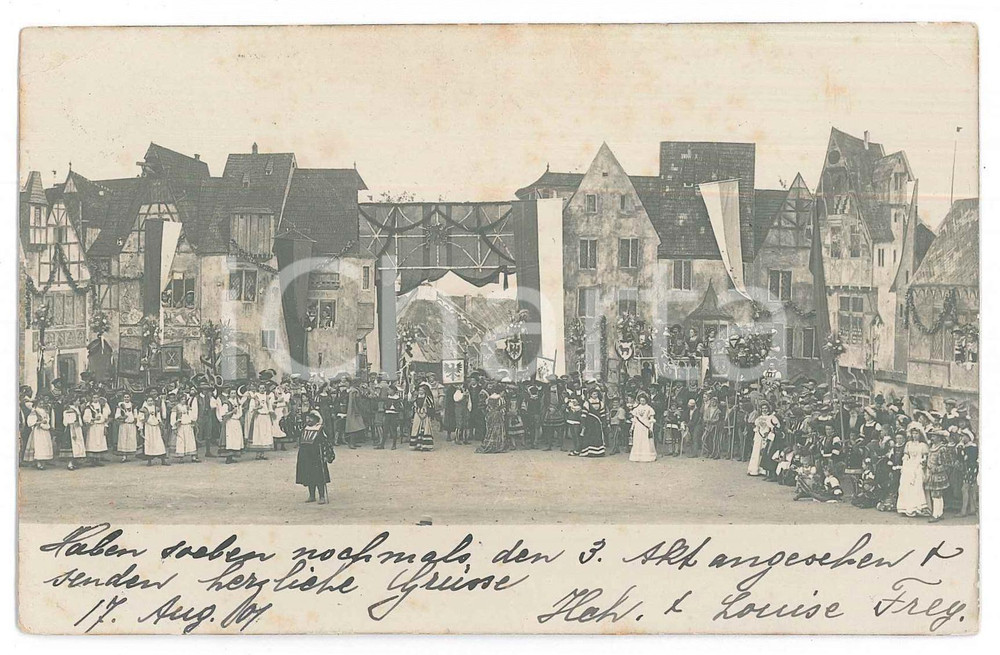 iCharta
Haben soeben nochmals den 3. Akt angesehen &
senden herzliche Grüsse
17. Aug. 01 Hch. & Louise Frey.